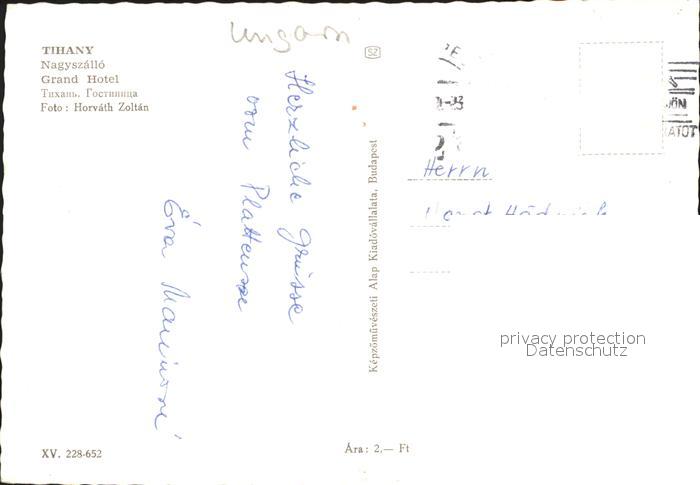 Ungarn
TIHANY
Nagyszálló
Grand Hotel
Тихань. Гостиница
Foto : Horváth Zoltán
SZ
Herzliche Grüsse
vom Plattensee
Éva
Képzőművészeti Alap Kiadóvállalata, Budapest
Herrn
privacy protection
Datenschutz
XV. 228-652
Ára: 2,— Ft